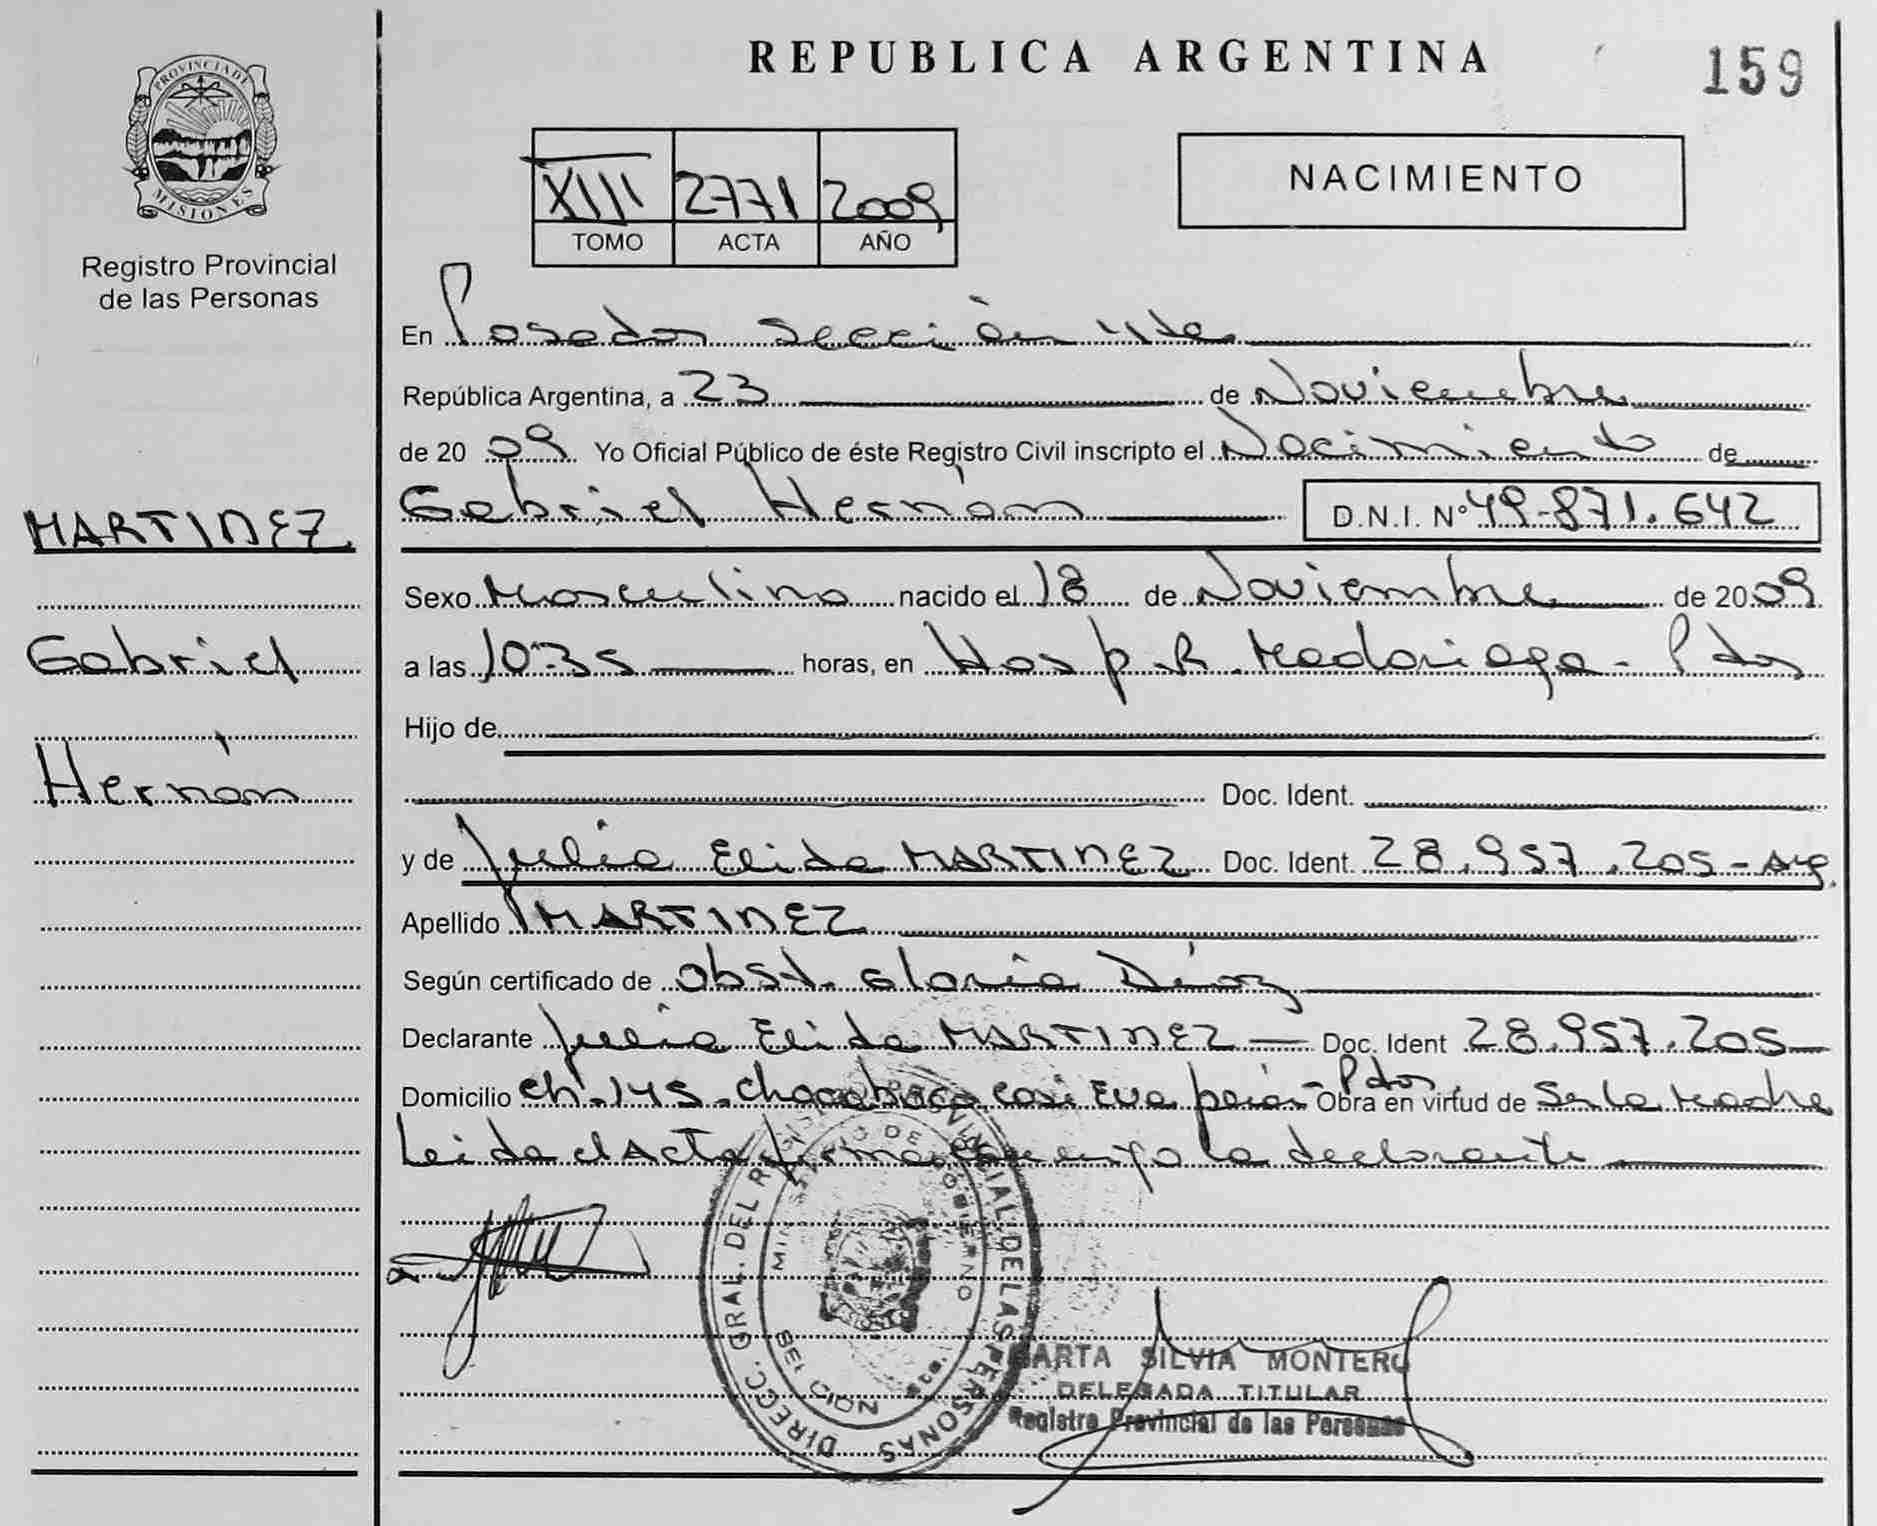 REPUBLICA ARGENTINA
159
PROVINCIA DE
MISIONES
Registro Provincial
de las Personas
XIII 2771 2009
TOMO ACTA AÑO
NACIMIENTO
En Posadas sección 4ta
República Argentina, a 23 de Noviembre
de 2009 Yo Oficial Público de éste Registro Civil inscripto el Nacimiento de
Gabriel Hernán D.N.I. Nº 49.871.642
MARTINEZ
Gabriel
Hernán
Sexo Masculino nacido el 18 de Noviembre de 2009
a las 10:35 horas, en Hosp. R. Madariaga - Pdas
Hijo de
Doc. Ident.
y de Julia Elida MARTINEZ Doc. Ident. 28.957.205 - Arg.
Apellido MARTINEZ
Según certificado de Obst. Gloria Díaz
Declarante Julia Elida MARTINEZ Doc. Ident 28.957.205
Domicilio Ch. 145. Chacabuco casi Eva perón - Pdas. Obra en virtud de Ser la Madre
Leida el Acta firma conmigo la declarante
DIRECC. GRAL. DEL PROVINCIAL DE LAS PERSONAS
MINISTERIO DE GOBIERNO
MARTA SILVIA MONTERO
DELEGADA TITULAR
Registro Provincial de las Personas